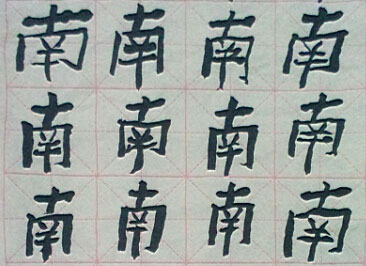 南南南南
南南南南
南南南南